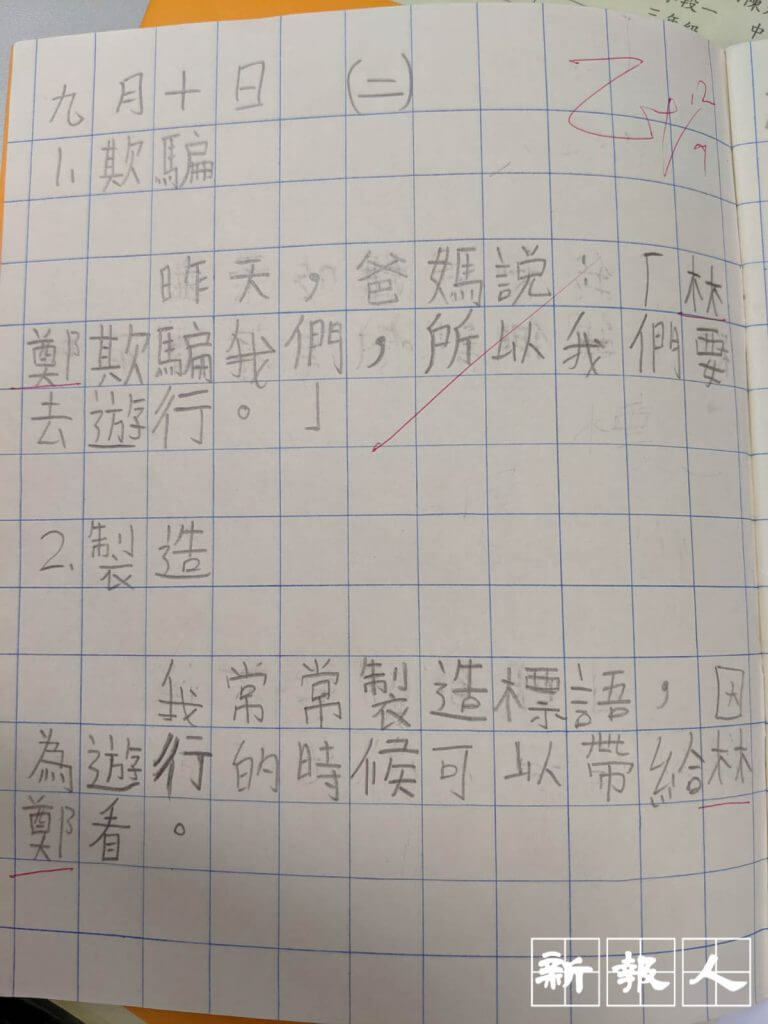 九月十日 (二)
乙+ 12/9
1. 欺騙
昨天，爸媽說：「林
鄭欺騙我們，所以我們要
去遊行。」
2. 製造
我常常製造標語，因
為遊行的時候可以帶給林
鄭看。
新報人